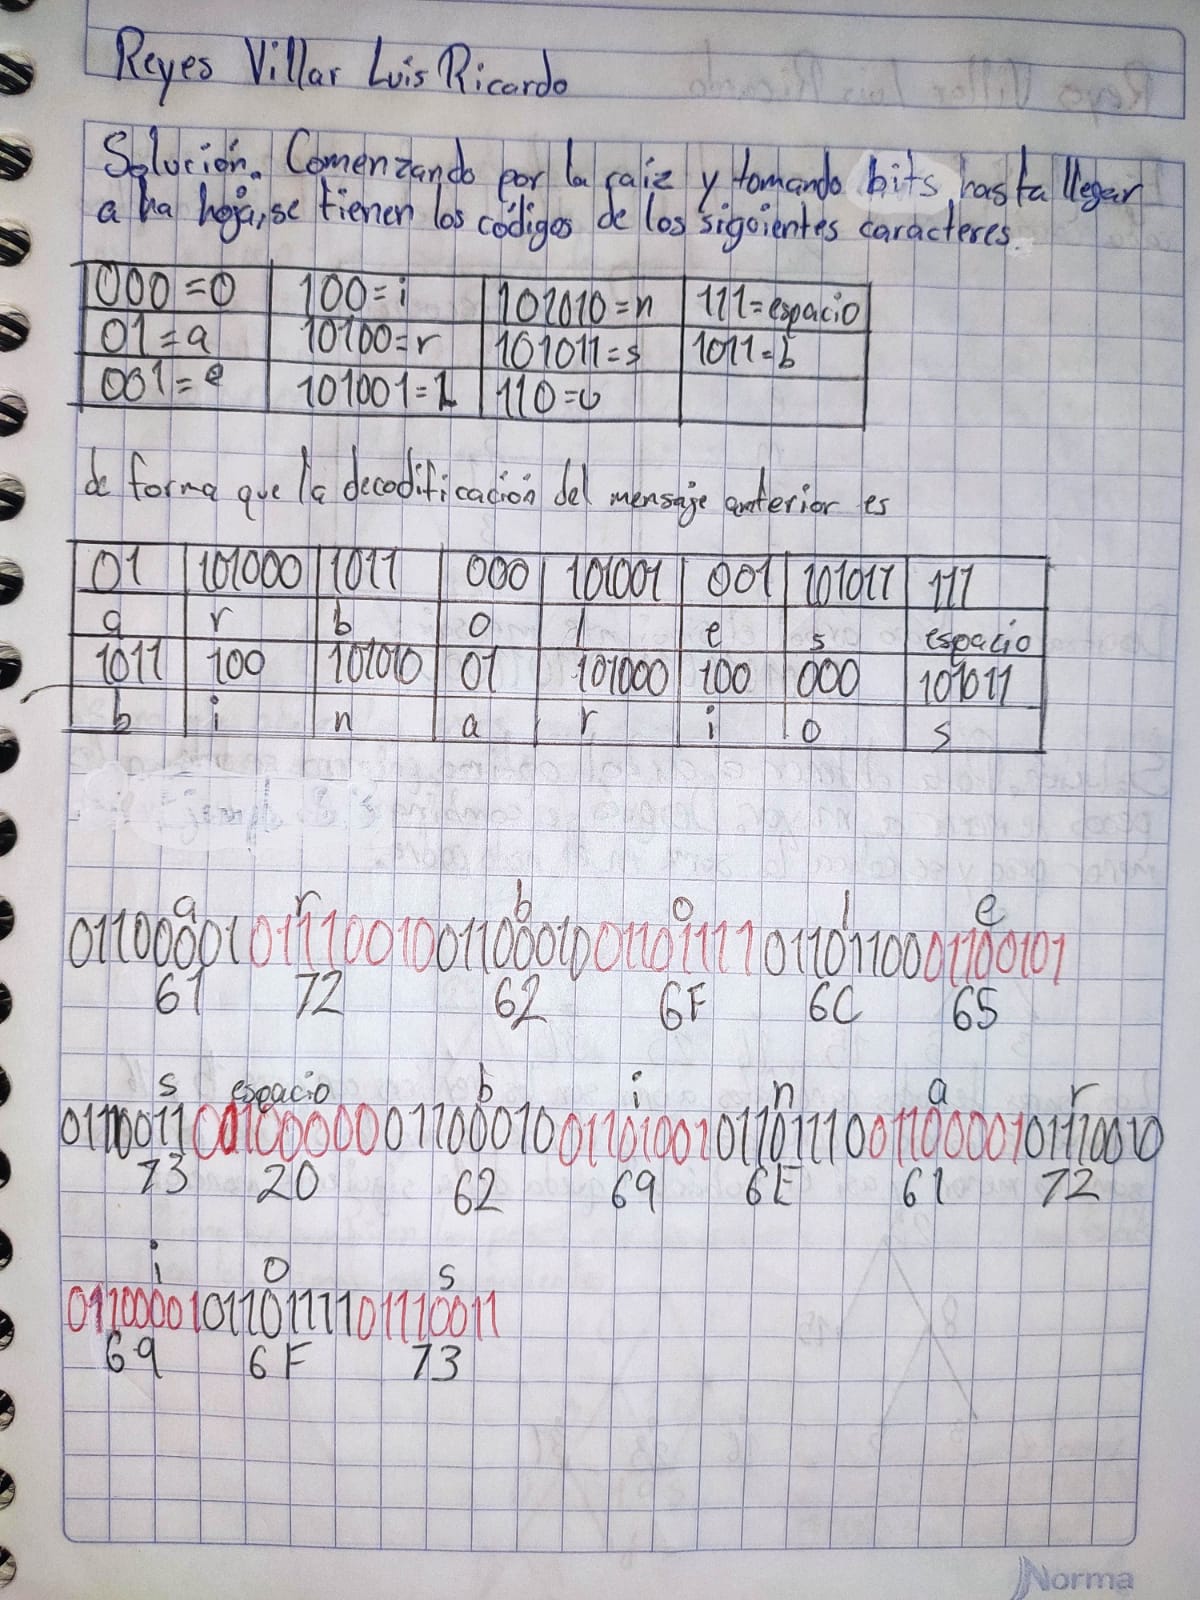 Reyes Villar Luis Ricardo
Solución. Comenzando por la raiz y tomando bits hasta llegar
a ha hoja, se tienen los códigos de los siguientes caracteres.
000=0 100=i 101010=n 111=espacio
01=a 10100=r 101011=s 1011=b
001=e 101001=L 110=u
de forma que la decodificación del mensaje anterior es
01 101000 1011 000 101001 001 101011 111
a r b o l e s espacio
1011 100 101010 01 101000 100 000 101011
b i n a r i o s
a r b o l e
011000010111001001100010011011110110110001100101
61 72 62 6F 6C 65
s espacio b i n a r
01110011001000000110001001101001011011100110000101110010
73 20 62 69 6E 61 72
i o s
011000010110111101110011
69 6F 73
Norma